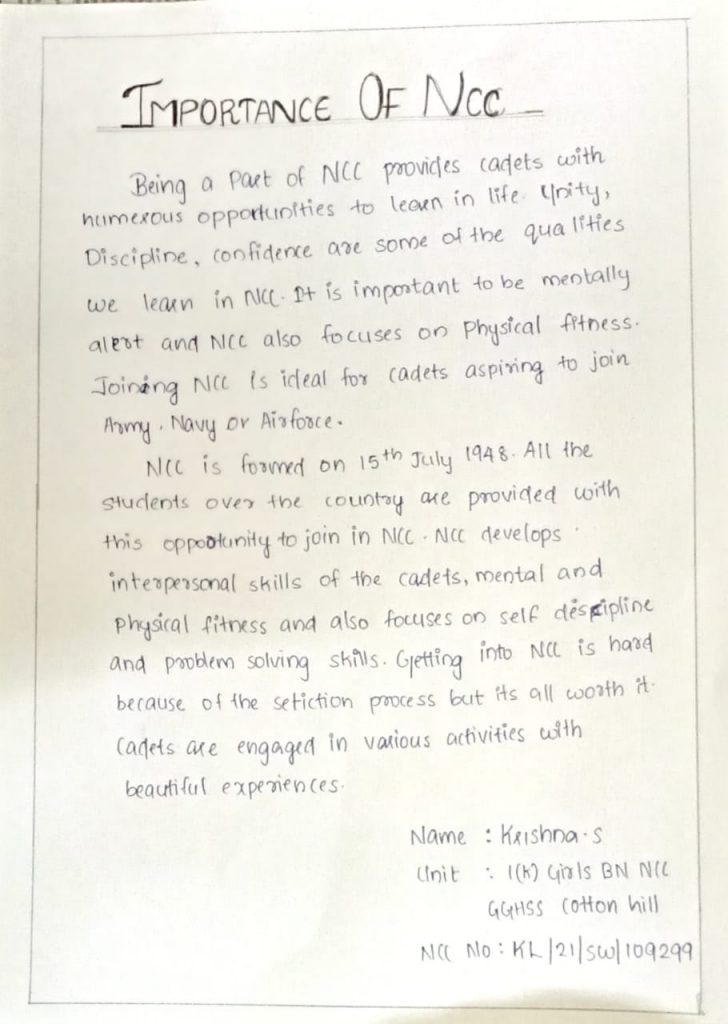 IMPORTANCE OF NCC
Being a Part of NCC provides cadets with
numerous opportunities to learn in life. Unity,
Discipline, confidence are some of the qualities
we learn in NCC. It is important to be mentally
alert and NCC also focuses on Physical fitness.
Joining NCC is ideal for cadets aspiring to join
Army, Navy or Airforce.
NCC is formed on 15th July 1948. All the
students over the country are provided with
this opportunity to join in NCC. NCC develops
interpersonal skills of the cadets, mental and
Physical fitness and also focuses on self descipline
and problem solving skills. Getting into NCC is hard
because of the setiction process but its all worth it.
Cadets are engaged in various activities with
beautiful experiences.
Name : Krishna.S
Unit : 1(K) Girls BN NCC
GGHSS Cotton hill
NCC No : KL/21/SW/109299